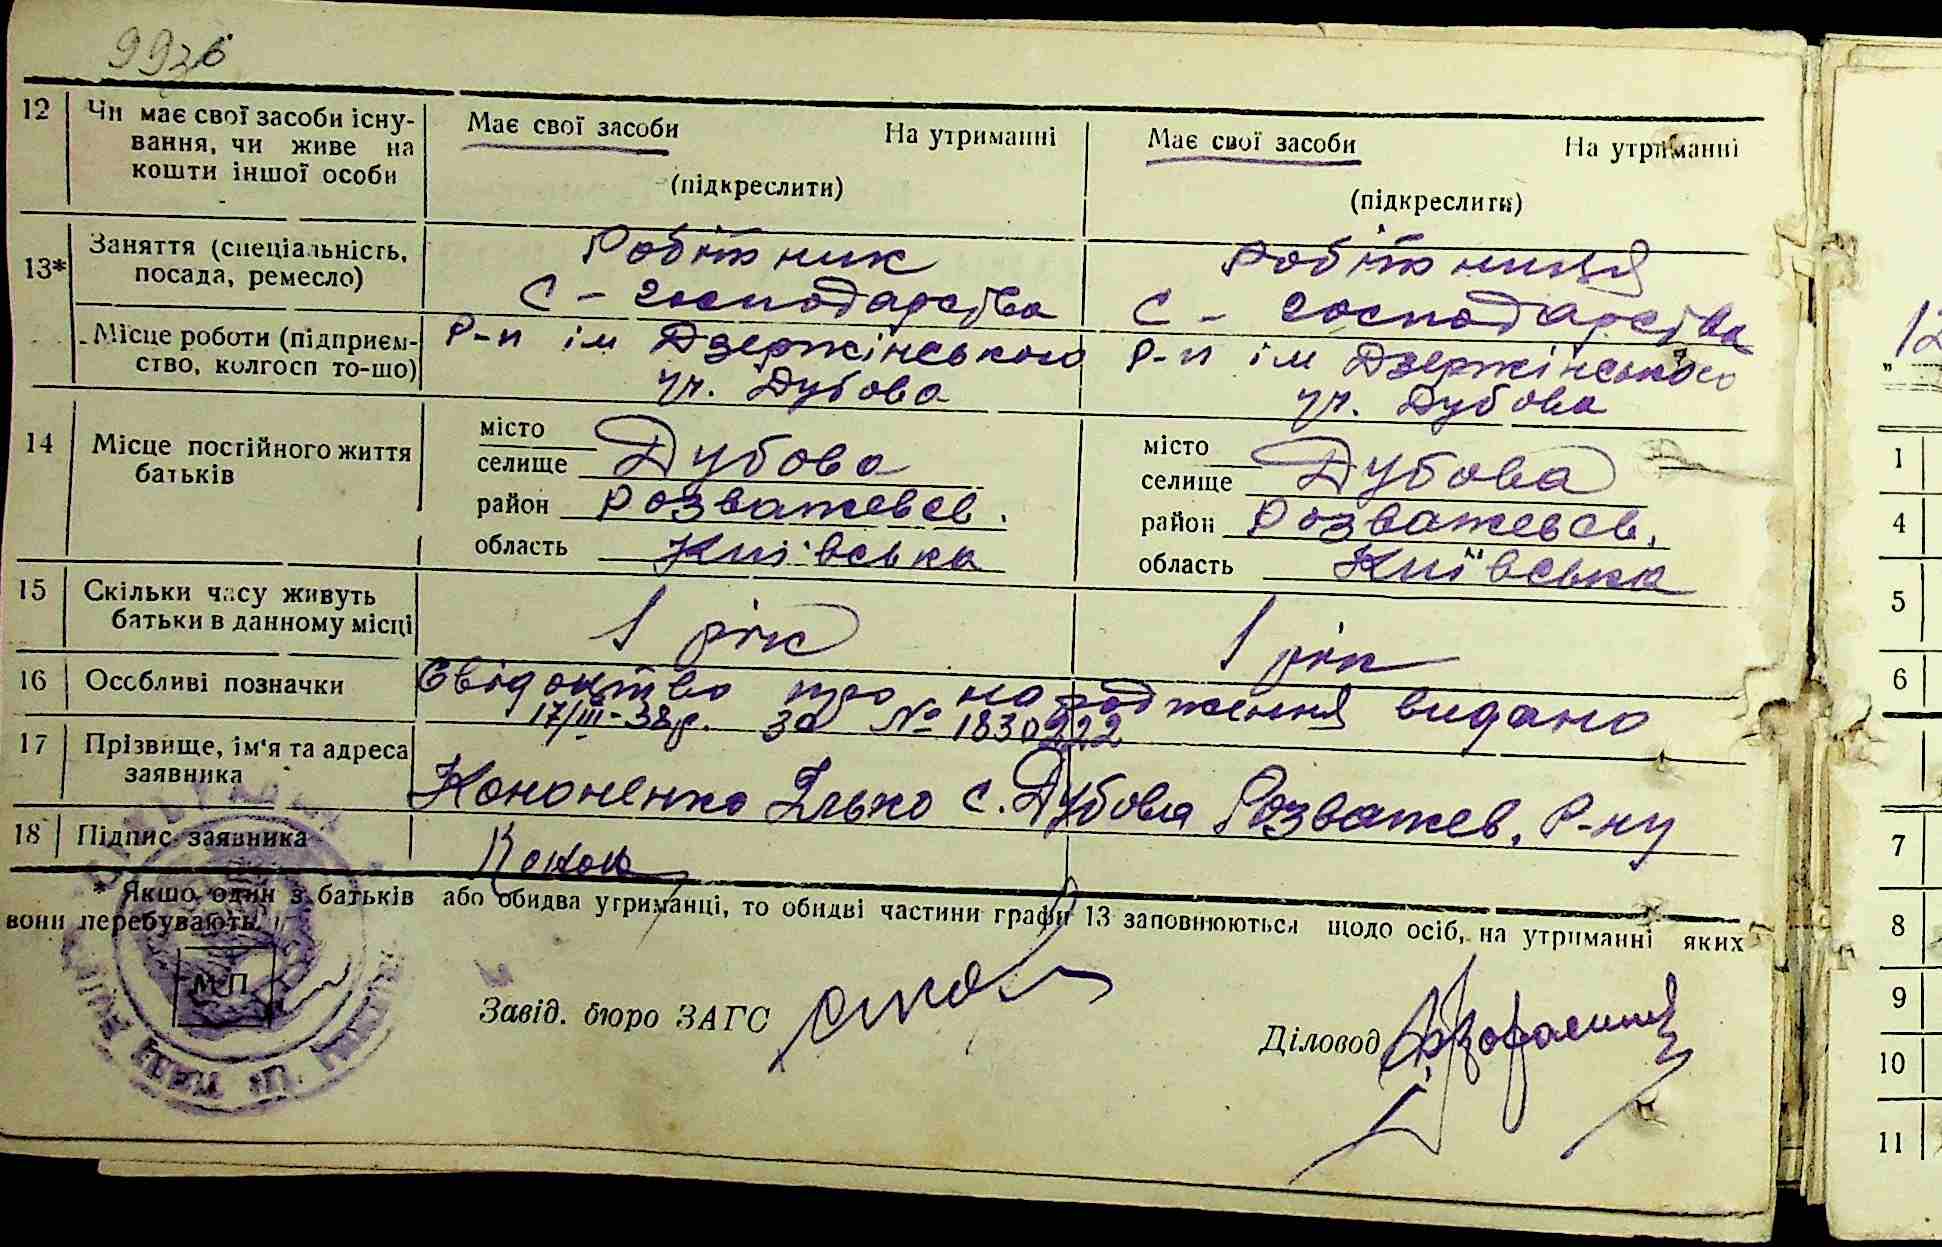 99зв
12 Чи має свої засоби існу- Має свої засоби На утриманні Має свої засоби На утриманні
вання, чи живе на
кошти іншої особи (підкреслити) (підкреслити)
13* Заняття (спеціальність, Робітник Робітниця
посада, ремесло) С - господарства С - господарства
Місце роботи (підприєм- Р-п ім Дзержінського Р-п ім Дзержінського
ство, колгосп то-що) уч. Дубова уч. Дубова
14 Місце постійного життя місто місто
батьків селище Дубова селище Дубова
район Розважевсв. район Розважевсв.
область Київська область Київська
15 Скільки часу живуть 1 рік 1 рік
батьки в данному місці
16 Особливі позначки Свідоцтво про народження видано
17/III-38р. за № 1830222
17 Прізвище, ім'я та адреса
заявника Кононенко Ілько с. Дубова Розважев. Р-ну
18 Підпис заявника Конон
* Якщо один з батьків або обидва утриманці, то обидві частини графи 13 заповнюються щодо осіб, на утриманні яких
вони перебувають.
М П
Завід. бюро ЗАГС
Діловод
12
1
4
5
6
7
8
9
10
11